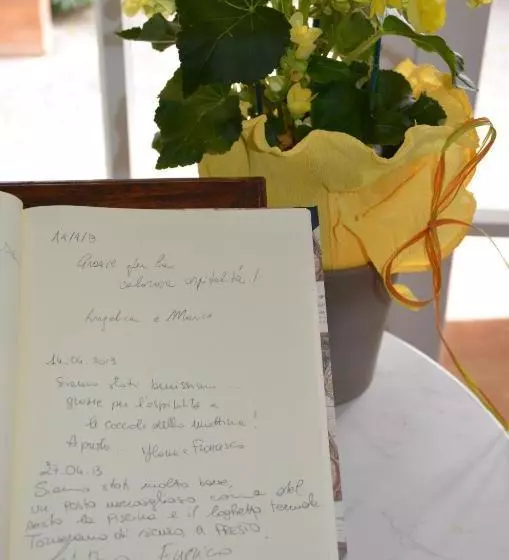 14/4/13
Grazie per la
calorosa ospitalità!
Angelica e Marco
14.04.2013
Siamo stati benissimo...
grazie per l'ospitalità e
le coccole della mattina!
A presto... Ylenia e Francesco
27.04.13
Siamo stati molto bene,
un posto meraviglioso come del
posto la piscina e il laghetto termale
Torneremo di sicuro a PRESTO.